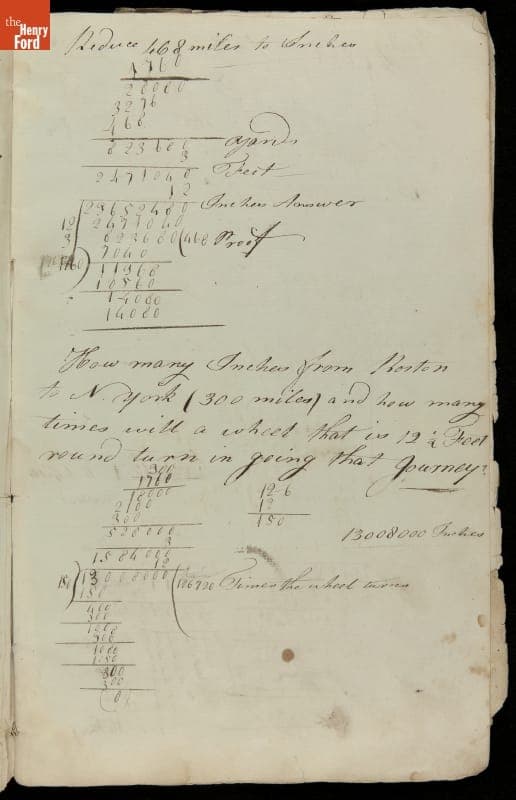 the
Henry
Ford
Reduce 468 miles to Inches
1760
28080
3276
468
823680 yards
3
2471040 Feet
12
29652480 Inches Answer
12 2471040
3 823680 (468 Proof
1760) 7040
11968
10560
14080
14080
How many Inches from Boston
to N. York (300 miles) and how many
times will a wheel that is 12 ½ Feet
round turn in going that Journey
300
1760
18000
2100
300
528000
3
1584000
12
12-6
12
150
13008000 Inches
150) 13008000 (126720 Times the wheel turns
150
400
300
1000
900
1000
1050
300
300
0